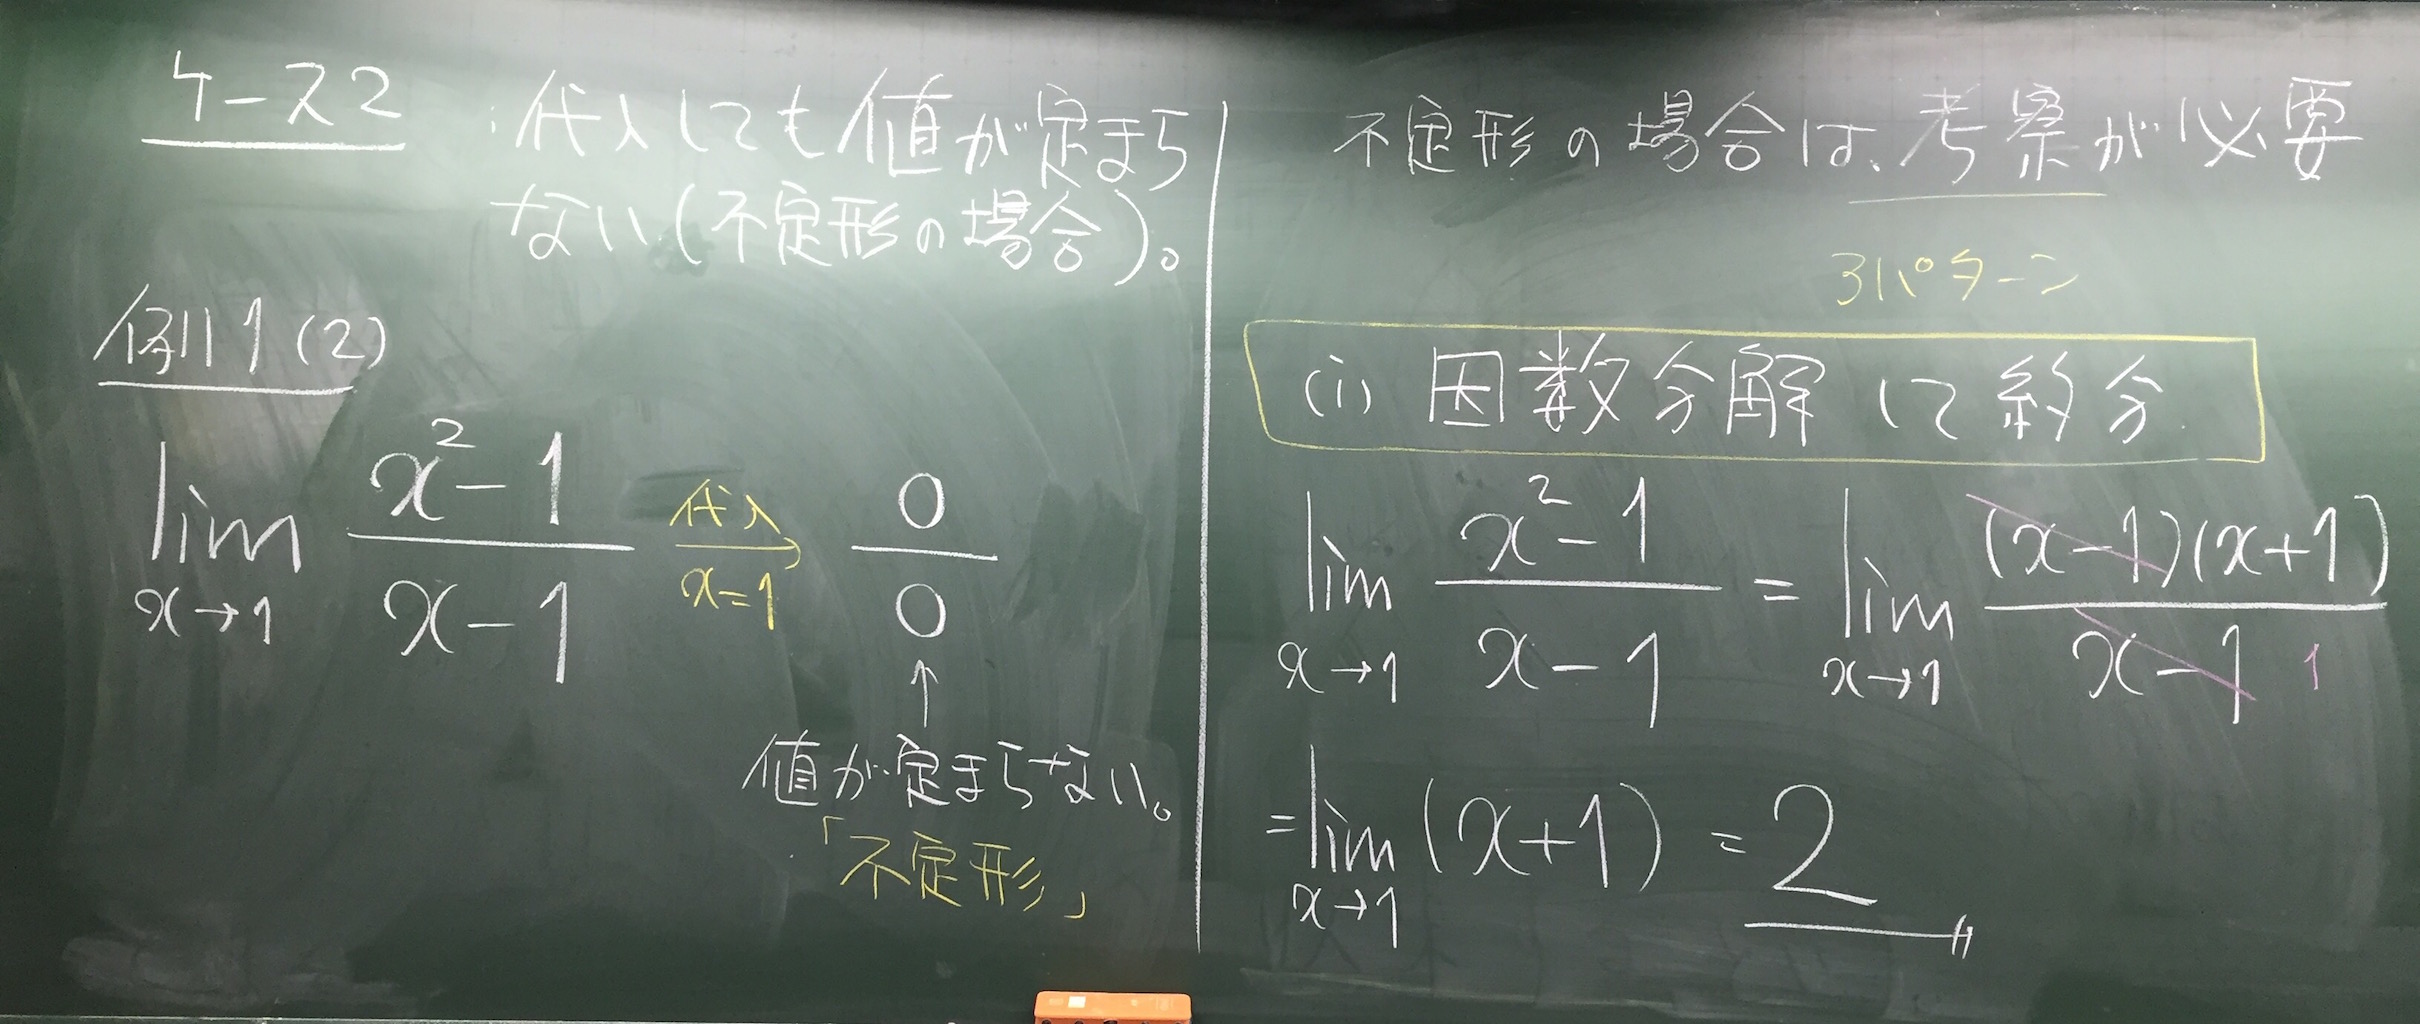 ケース2 :代入しても値が定まら
ない(不定形の場合)。
例1(2)
lim x→1 (x²-1)/(x-1) 代入 x=1 → 0/0
↑
値が定まらない。
「不定形」
不定形の場合は、考察が必要
3パターン
(i) 因数分解して約分
lim x→1 (x²-1)/(x-1) = lim x→1 (x-1)(x+1)/(x-1) 1
=lim x→1 (x+1) = 2